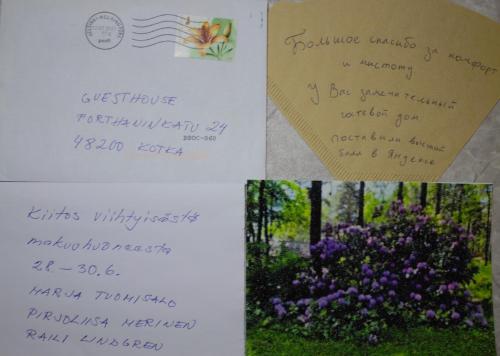 GUESTHOUSE
PORTHANINKATU 24
48200 KOTKA
Большое спасибо за комфорт
и чистоту
У Вас замечательный
гостевой дом
поставили высший
балл в Яндексе
Kiitos viihtyisästä
makuuhuoneesta
28.–30.6.
MARJA TUOMISALO
PIRJOLIISA MERINEN
RAILI LINDGREN